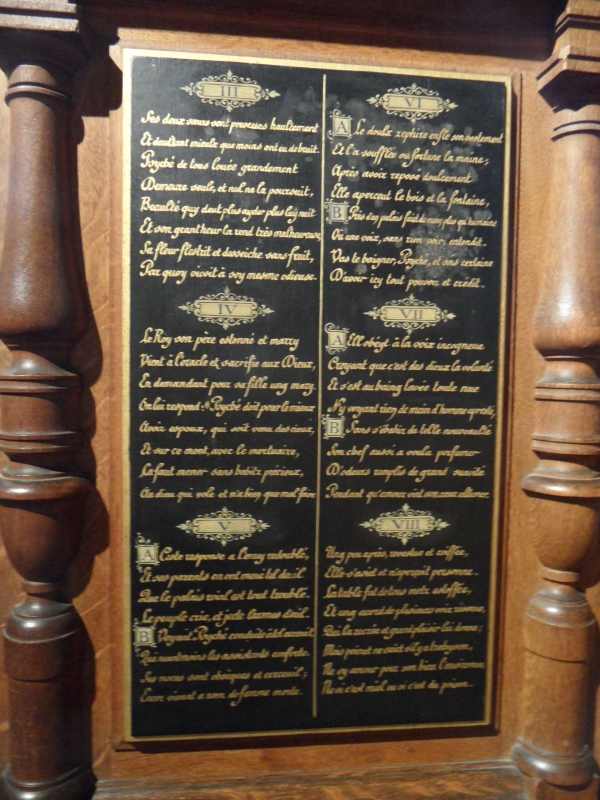 III
Ses deux sœurs sont pourveues haultement
Et daultant mieulx que moins ont eu de bruit.
Psyché de tous louée grandement
Demeure seule, et nul ne la poursuit,
Beaulté quy deut plus ayder plus luy nuit
Et son grant heur la rend très malheureuse,
Sa fleur flistrit et desseiche sans fruit,
Par quoy vivoit à soy mesme odieuse.
IV
Le Roy son père estonné et marry
Vient à l'oracle et sacrifie aux Dieux,
En demandant pour sa fille ung mary.
On luy respond: Psyché doit pour le mieux
Avoir espoux, qui soit venu des cieux,
Et sur ce mont, avec le mortuaire,
La faut mener sans habitz précieux,
Au dieu qui vole et n'a bien que mal faire
V
A Ceste response a l'ennuy redoublé,
Et ses parents en ont mené tel dueil
Que le palais vint est tout trouble
Le peuple crie, et jecte larmes d'œil.
B Voyant Psyché conduite à tel
Qui neantmoins les assistants conforte.
Ses noces sont obsèques et cercueil;
Encor vivant a nom de femme morte.
VI
A Le doulx zephire enfle son vestement
Et l'a soufflée ou fortune la maine;
Après avoir reposé doulcement
Elle aperceut le bois et la fontaine,
B Près d'un palais faict de main plus qu'humaine
Où une voix, sans rien voir, entendit,
Vas te baigner, Psyché, et sois certaine
D'avoir icy tout pouvoir et crédit.
VII
A Ell obéyt à la voix incogneue
Croyant que c'est des dieux la volunté
Et s'est au baing lavée toute nue
N'y voyant rien de main d'homme apresté,
B Sans s'ébahir de telle nouveaulté
Son chef aussi a voulu parfumer
D'odeurs remplis de grant suavité
Pendant qu'amour vint son cœur allumer.
VIII
Ung peu après, revestue et coiffée,
Elle s'assiet et n'aperçoit personne
La table fut de tous metz estoffée,
Et ung accord de plusieurs voix resonne,
Qui la recrée et grant plaisir luy donne;
Mais point ne voit s'il y a trahyson,
Ne sy amour pour son bien l'environne,
Ne si c'est miel ou si c'est du poison.